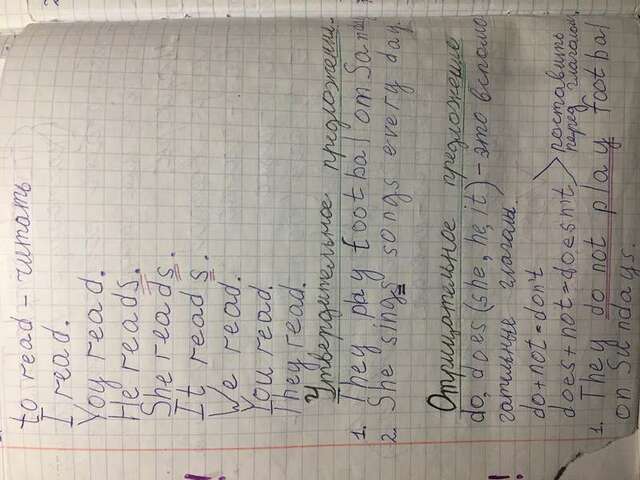 to read - читать
I read.
Yoy read.
He reads.
She reads.
It reads.
We read.
You read.
They read.
Утвердительное предложение.
1. They play footbal om Sanday
2. She sings songs every day.
Отрицательное предложение
do, does (she, he, it) - это вспомо
гательные глаголы.
do + not = don't
does + not = doesn't
поставить
перед глаголом.
1. They do not play footbal
on Sundays.